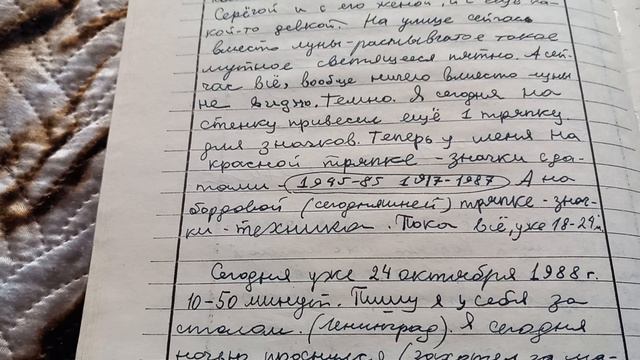 Серёгой и с его женой, и с ещё ка-
кой-то девкой. На улице сейчас
вместо луны-расплывчатое такое
мутное светящееся пятно. А сей-
час всё, вообще ничего вместо луны
не видно. Темно. Я сегодня на
стенку привесил ещё 1 тряпку
для значков. Теперь у меня на
красной тряпке - значки с да-
тами - 1945-85 1917-1987 А на
бордовой (сегодняшней) тряпке - знач-
ки - техника. Пока всё, уже 18-29м.
Сегодня уже 24 октября 1988 г.
10-50 минут. Пишу я у себя за
столом. (Ленинград). Я сегодня
ночью проснулся (захотел за